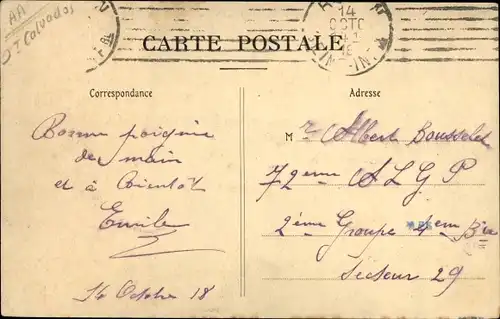 AA
Dt Calvados
14
OCTO
CARTE POSTALE
Correspondance
Adresse
Bonne poignée
de main
et à bientôt
Emile
14 Octobre 18
Mr Albert Bousselet
72eme A L G P
2ème Groupe 4em Bie
Secteur 29